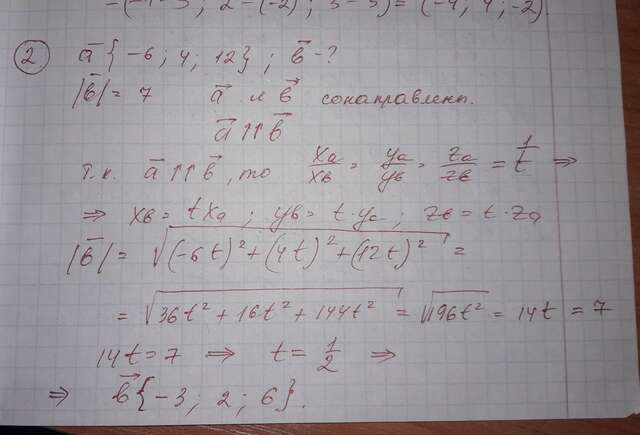 = (-1-3; 2-(-2); 3-5) = (-4; 4; -2).
② a⃗ {-6; 4; 12}; b⃗ -?
|b⃗| = 7   a⃗ и b⃗ сонаправлены.
a⃗ ↑↑ b⃗
т.к. a⃗ ↑↑ b⃗, то xa/xb = ya/yb = za/zb = 1/t ⇒
⇒ xb = txa; yb = t·ya; zb = t·za
|b⃗| = √((-6t)² + (4t)² + (12t)²) =
= √(36t² + 16t² + 144t²) = √(196t²) = 14t = 7
14t = 7 ⇒ t = 1/2 ⇒
⇒ b⃗ {-3; 2; 6}.